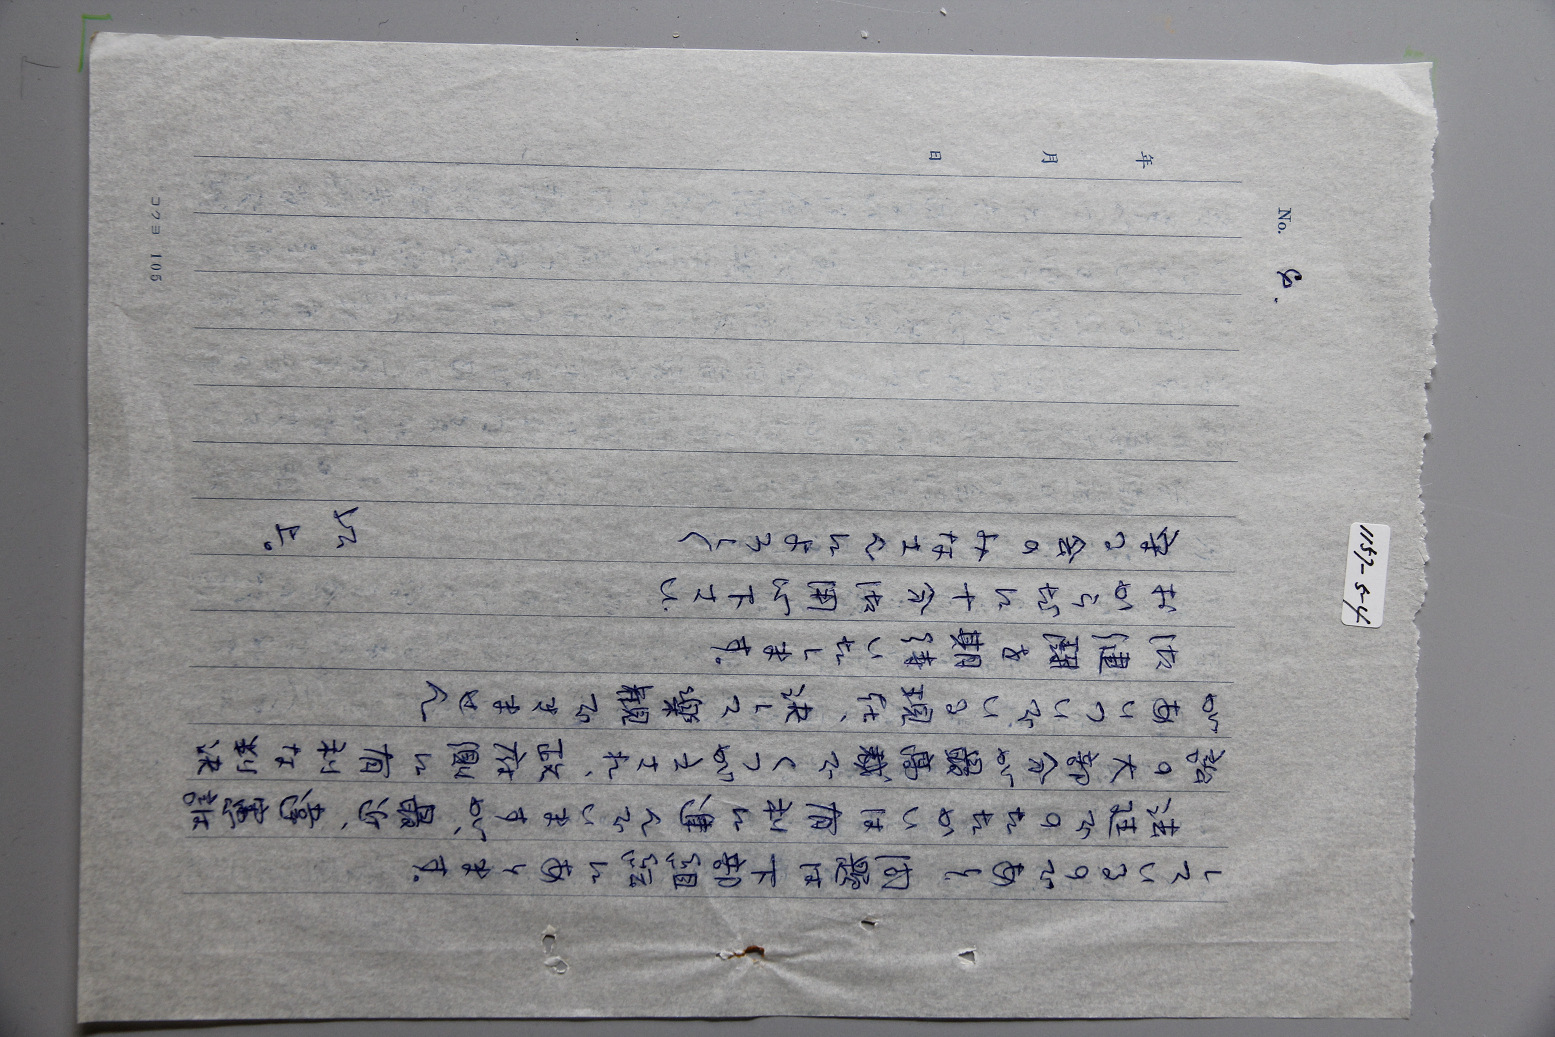 No. 8.
しているのであり 問題は下部組織にあります。
法廷でのたたかいは有利に進んでいますが、最近、違憲訴
訟の大部分が最高裁でくつがえされ、政府側に有利な判決
があいついでいる現在、決して楽観できません
御健闘を期待いたします。
おからだに十分御用心下さい。
守る会のみなさんによろしく
以上。
年 月 日
コクヨ 105
1157-5-4